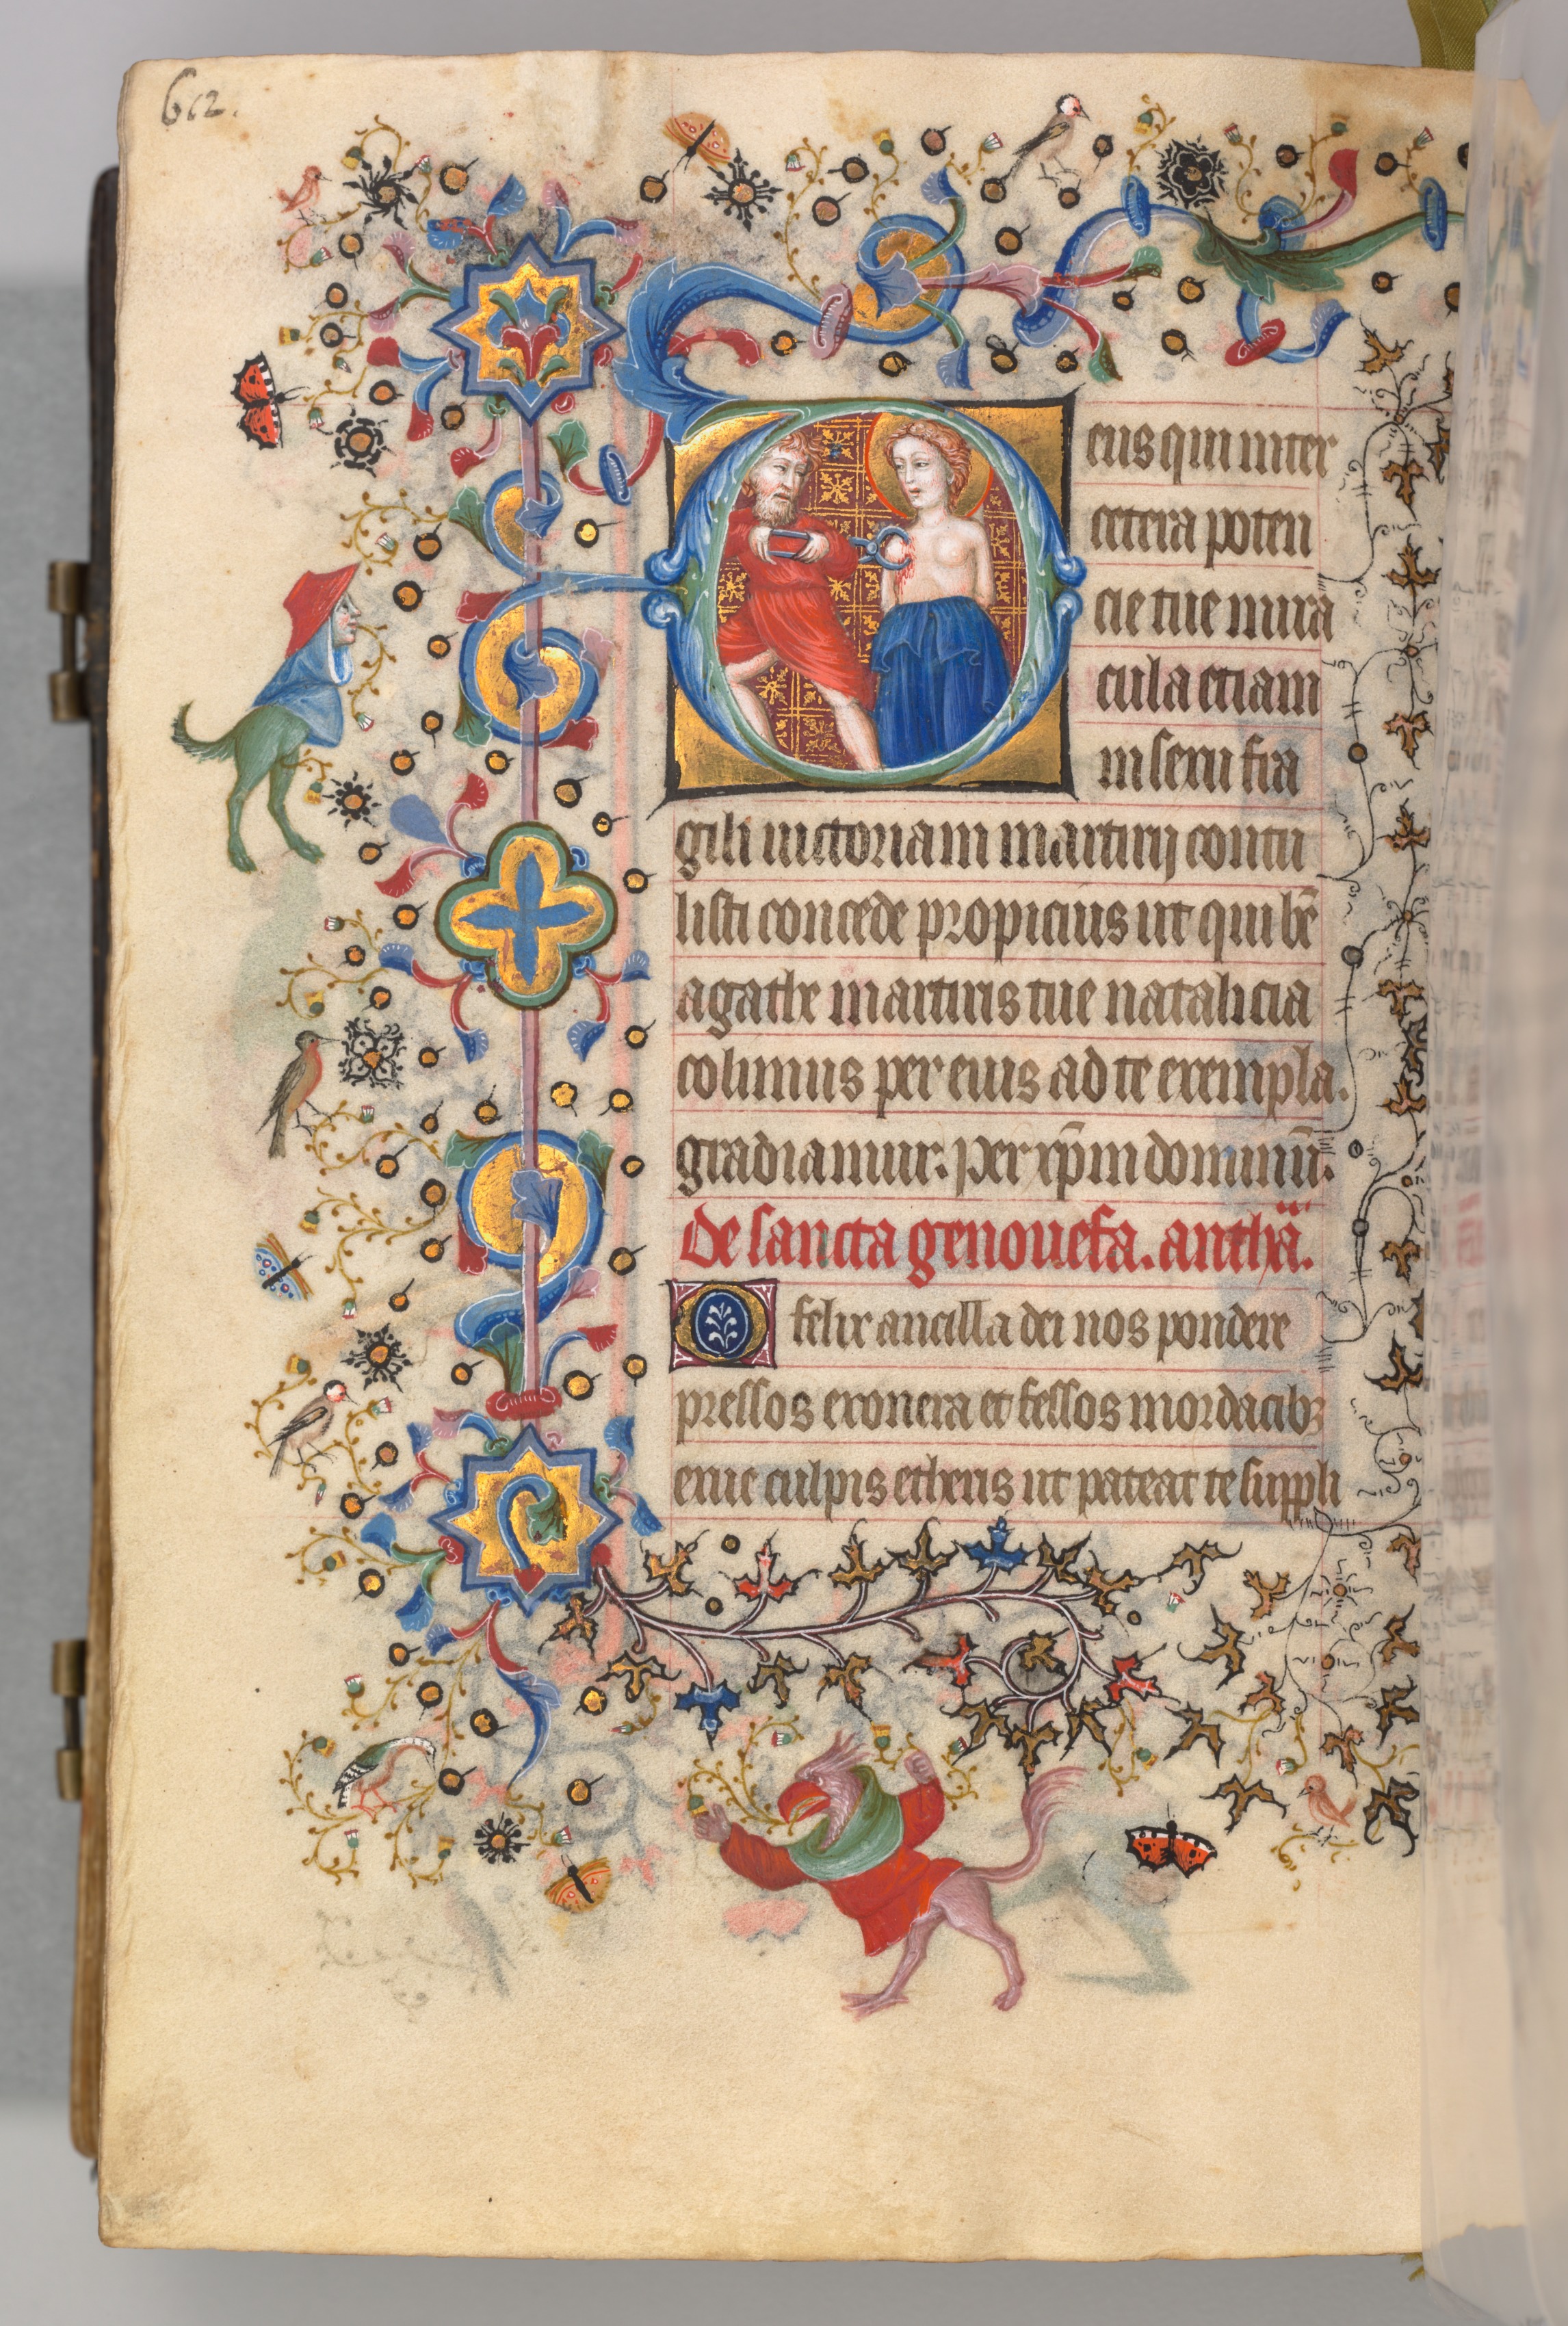 612.
Deus qui inter
cetera poten
cie tue mira
cula etiam
in sexu fra
gili uictoriam martirij contu
listi concede propicius ut qui bẽ
agathe martiris tue natalicia
colimus per eius ad te exempla.
gradiamur. Per xp̃m dominũ.
De sancta genouefa. anthã.
O felix ancilla dei nos pondere
pressos exonera et fessos mordacibꝫ
erue culpis etheris ut pateat te suppli